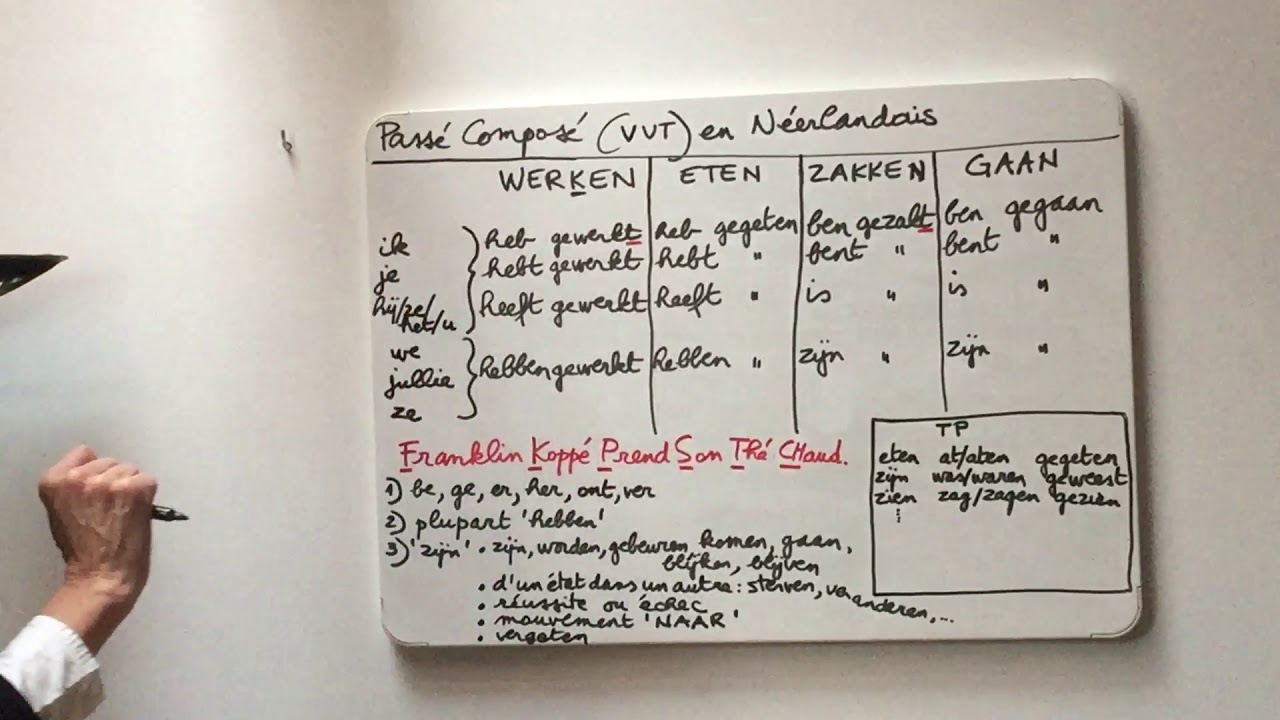 Passé Composé (VVT) en Néerlandais
WERKEN ETEN ZAKKEN GAAN
ik heb gewerkt heb gegeten ben gezakt ben gegaan
je hebt gewerkt hebt " bent " bent "
hij/ze/het/u heeft gewerkt heeft " is " is "
we
jullie hebben gewerkt hebben " zijn " zijn "
ze
Franklin Koppé Prend Son Thé CHaud.
1) be, ge, er, her, ont, ver
2) plupart 'hebben'
3) 'zijn' • zijn, worden, gebeuren komen, gaan,
blijken, blijven
• d'un état dans un autre : sterven, veranderen, ...
• réussite ou échec
• mouvement 'NAAR'
• vergeten
TP
eten at/aten gegeten
zijn was/waren geweest
zien zag/zagen gezien
⋮